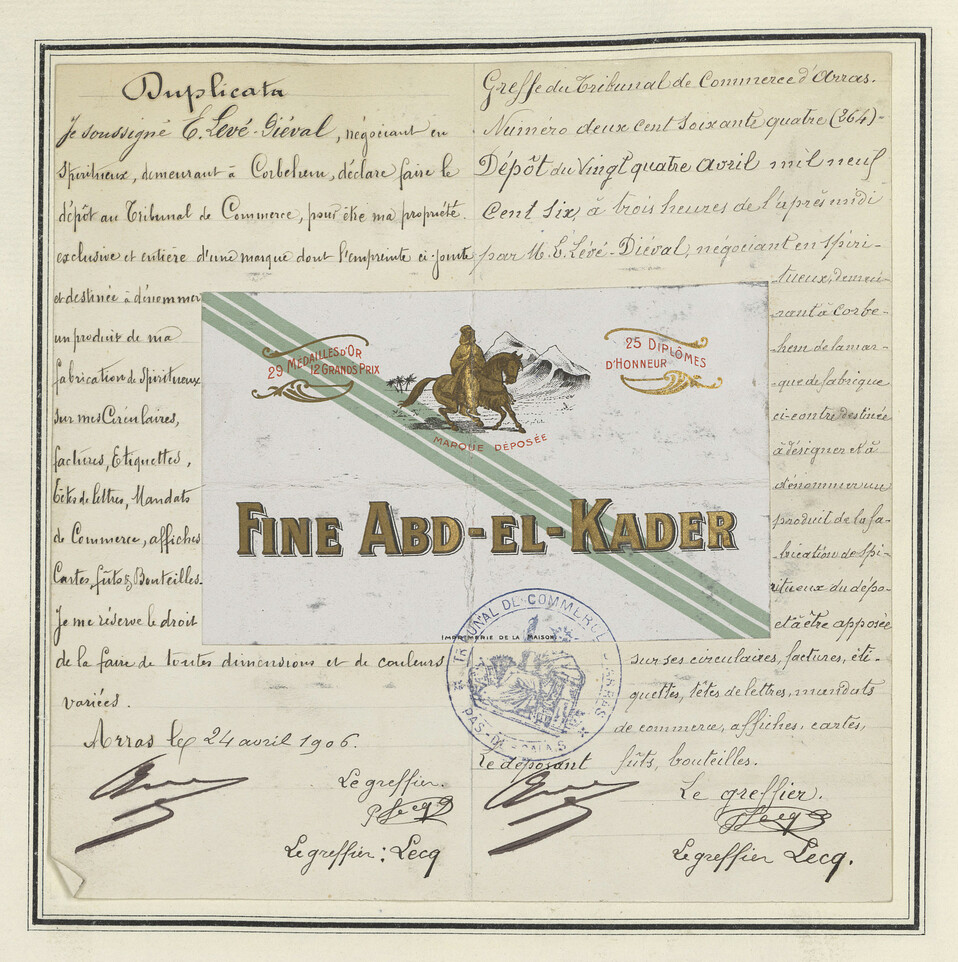 Duplicata
Je soussigné E. Levé-Diéval, négociant en
Spiritueux, demeurant à Corbehem, déclare faire le
dépôt au Tribunal de Commerce, pour être ma propriété
exclusive et entière d'une marque dont l'empreinte ci-jointe
et destinée à dénommer
un produit de ma
fabrication de Spiritueux
sur mes Circulaires,
factures, Etiquettes,
têtes de lettres, Mandats
de Commerce, affiches
Cartes, fûts & Bouteilles.
Je me réserve le droit
de la faire de toutes dimensions et de couleurs
variées.
Arras le 24 avril 1906.
Le greffier.
Lecq
Le greffier : Lecq
Greffe du Tribunal de Commerce d'Arras.
Numéro deux cent soixante quatre (264)-
Dépôt du Vingt quatre avril mil neuf
Cent Six, à trois heures de l'après midi
par M. E. Lévé-Diéval, négociant en spiri-
tueux, demeu-
rant à Corbe-
hem de la mar-
que de fabrique
ci-contre destinée
à désigner et à
dénommer un
produit de la fa-
brication de spi-
ritueux du dépo-
et à être apposée
sur ses circulaires, factures, éti-
quettes, têtes de lettres, mandats
de commerce, affiches, cartes,
fûts, bouteilles.
Le déposant
Le greffier.
Lecq
Le greffier Lecq.
29 MÉDAILLES D'OR
12 GRANDS PRIX
25 DIPLÔMES
D'HONNEUR
MARQUE DÉPOSÉE
FINE ABD-EL-KADER
(IMPRIMERIE DE LA MAISON)
TRIBUNAL DE COMMERCE D'ARRAS
PAS-DE-CALAIS